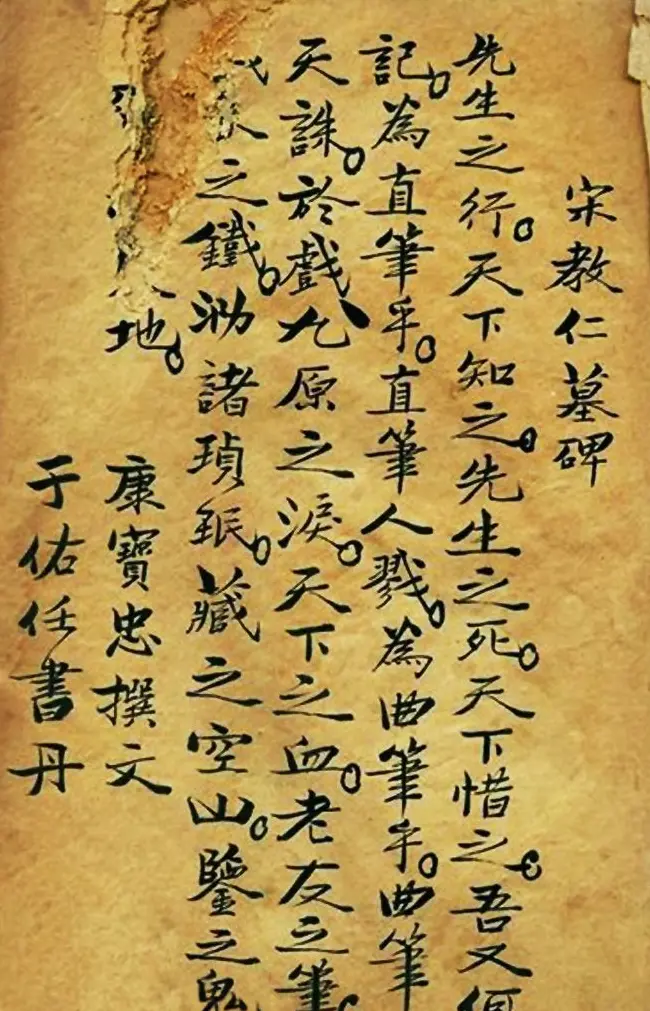 宋教仁墓碑
先生之行。天下知之。先生之死。天下惜之。吾又何
記。為直筆乎。直筆人戮。為曲筆乎。曲筆
天誅。於戲九原之淚。天下之血。老友之筆。
之鐵。泐諸珉。藏之空山。鑒之鬼
地。
康寶忠撰文
于佑任書丹